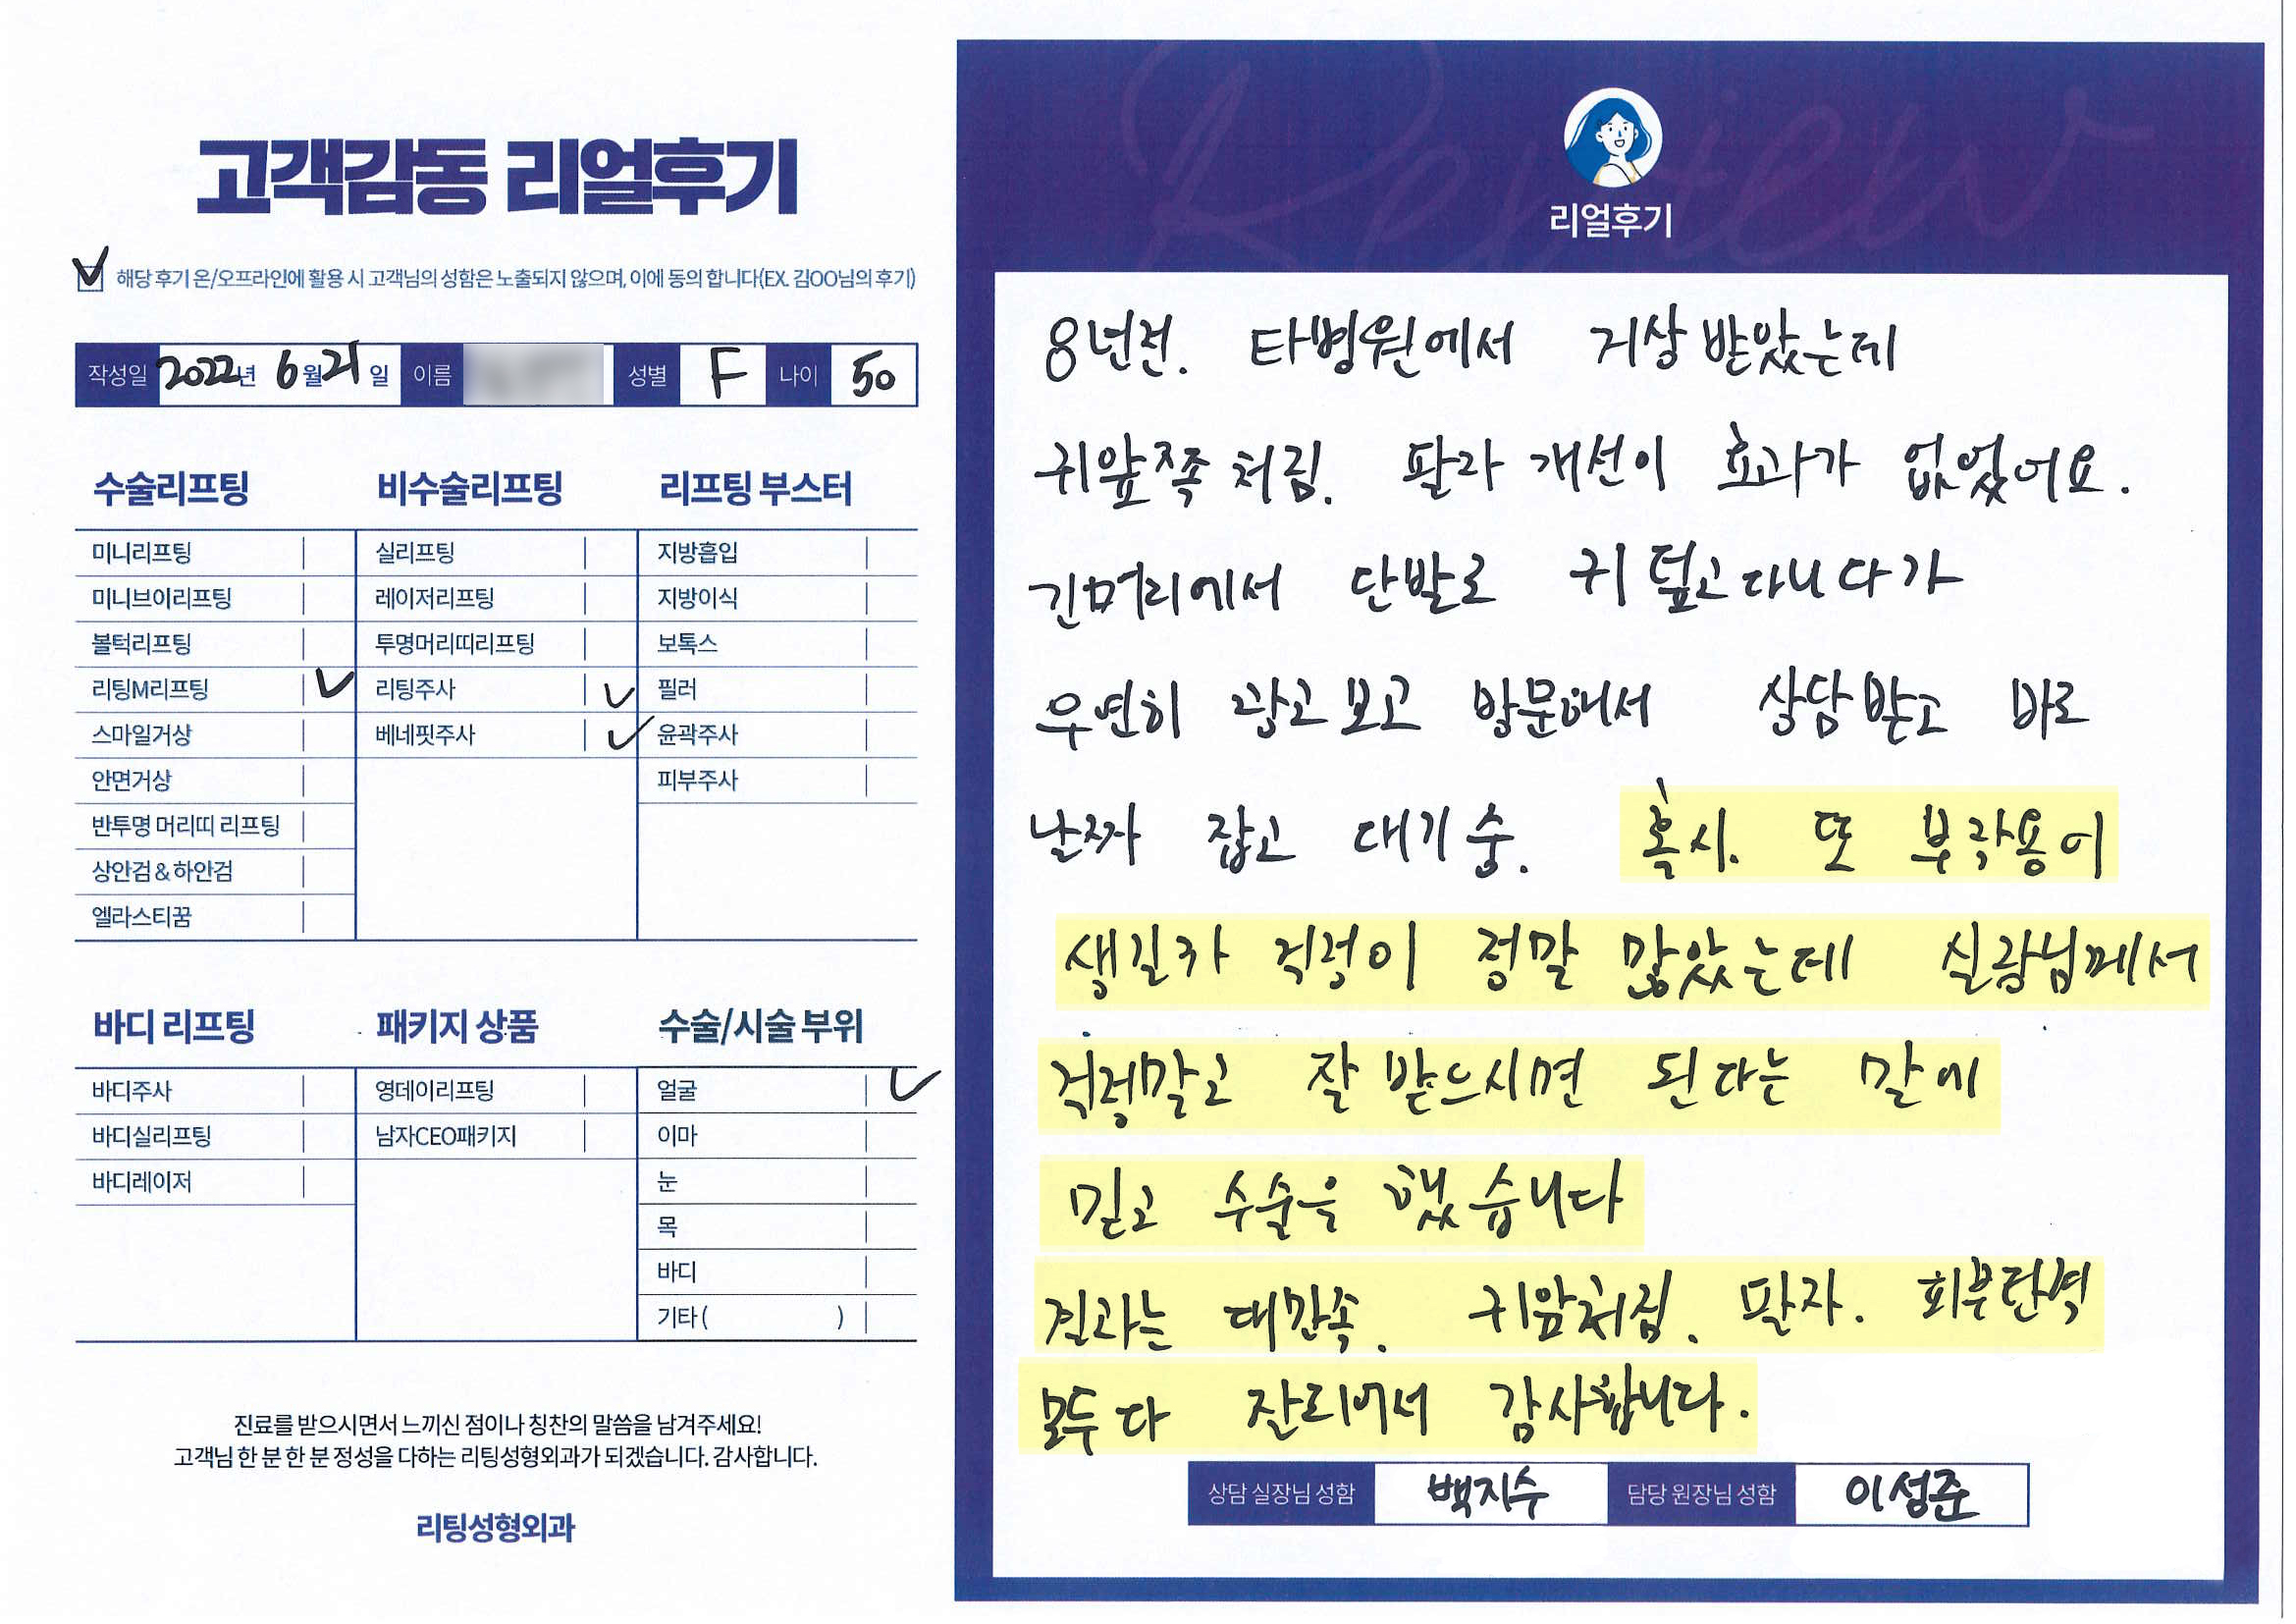 고객감동 리얼후기
해당 후기 온/오프라인에 활용 시 고객님의 성함은 노출되지 않으며, 이에 동의 합니다(EX. 김OO님의 후기)
작성일 2022년 6월 21일 이름 성별 F 나이 50
수술리프팅
미니리프팅
미니브이리프팅
볼턱리프팅
리팅M리프팅
스마일거상
안면거상
반투명 머리띠 리프팅
상안검 & 하안검
엘라스티꿈
비수술리프팅
실리프팅
레이저리프팅
투명머리띠리프팅
리팅주사
베네핏주사
리프팅 부스터
지방흡입
지방이식
보톡스
필러
윤곽주사
피부주사
바디 리프팅
바디주사
바디실리프팅
바디레이저
패키지 상품
영데이리프팅
남자CEO패키지
수술/시술 부위
얼굴
이마
눈
목
바디
기타 ( )
진료를 받으시면서 느끼신 점이나 칭찬의 말씀을 남겨주세요!
고객님 한 분 한 분 정성을 다하는 리팅성형외과가 되겠습니다. 감사합니다.
리팅성형외과
Review
리얼후기
8년전. 타병원에서 거상 받았는데
귀앞쪽 처짐. 팔자 개선이 효과가 없었어요.
긴머리에서 단발로 귀 덮고 다니다가
우연히 광고보고 방문해서 상담받고 바로
날짜 잡고 대기중. 혹시. 또 부작용이
생길까 걱정이 정말 많았는데 실장님께서
걱정말고 잘 받으시면 된다는 말에
믿고 수술을 했습니다
결과는 대만족. 귀앞처짐. 팔자. 피부탄력
모두 다 잘되어서 감사합니다.
상담 실장님 성함 백지수 담당 원장님 성함 이성준